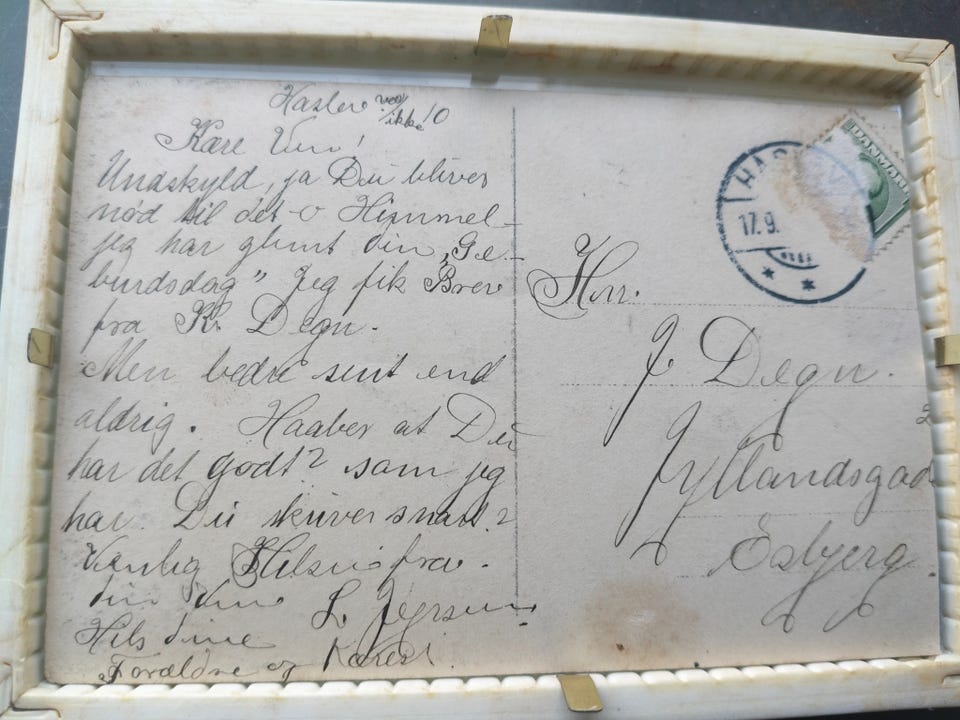 Kære Ven!
Undskyld, ja Du bliver
nød til det - o Himmel -
jeg har glemt din „Ge-
burdsdag" Jeg fik Brev
fra Kr. Degn.
Men bedre sent end
aldrig. Haaber at Du
har det godt? som jeg
har. Du skriver snart?
Venlig Hilsen fra
din Ven L.
Hils dine
Forældre og Kærest.
Hrr.
J. Degn.
Jyllandsgade
Esbjerg.
17.9.
DANMARK